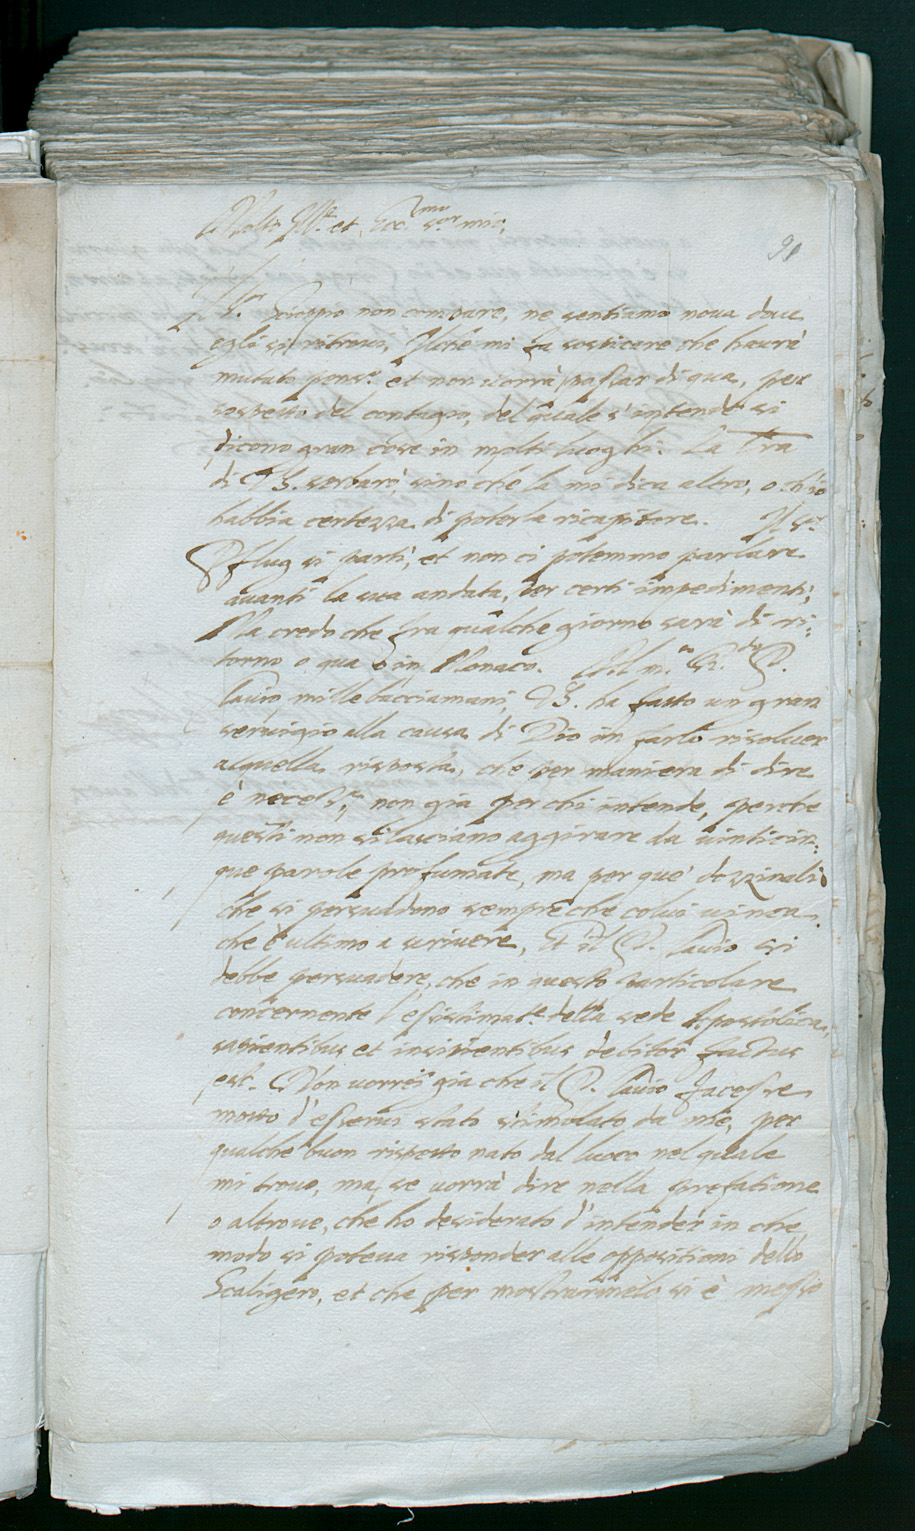 Molto Ill.re et Ecc.mo s.or mio,
91
Il s.or Scioppio non compare, ne sentiamo nova dove
egli si ritrovi, Il che mi fa sospicare che haurà
mutato pens.o et non vorrà passar di qua, per
sospetto del contagio, del quale s'intende si
dicono gran cose in molti luoghi. La l'ra
di V S. serbarò sino che la mi dica altro, o ch'io
habbia certezza di poterla ricapitare. Il s.or
Pflug si partì, et non ci potemmo parlare
avanti la sua andata, per certi impedimenti,
Ma credo che fra qualche giorno sarà di ri:
torno o qua o in Monaco. Al m.to R.do P.
Clavio mille bacciamani, V S. ha fatto un gran
servigio alla causa di Dio in farlo risolver
a quella risposta, che per maniera di dire
è necess.ria non già per chi intende, perche
questi non si lasciano aggirare da vinticin:
que parole profumate, ma per que' dozzinali
che si persuadono sempre che colui vinca
che è ultimo a scrivere, Et il P. Clavio si
debbe persuadere, che in questo particolare
concernente l'essistimat.e della sede Apostolica,
sapientibus et insipientibus debitor factus
est. Non vorrei già che il P. Clavio facesse
motto d'esservi stato stimolato da me, per
qualche buon rispetto nato dal luoco nel quale
mi trovo, ma se vorrà dire nella prefatione
o altrove, che ho desiderato d'intender in che
modo si poteva risponder alle oppositioni dello
Scaligero, et che per mostrarmelo si è messo